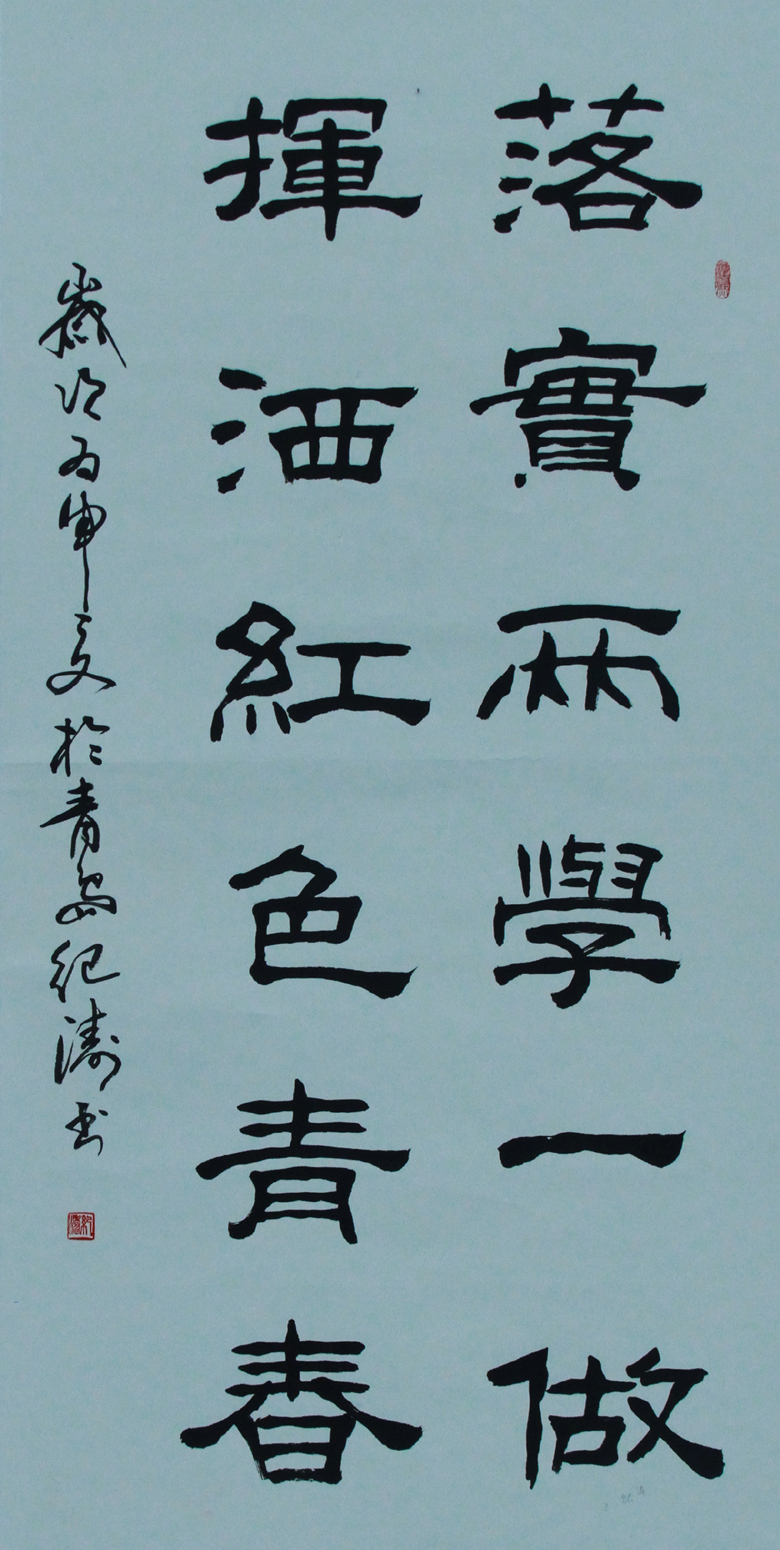 落實兩學一做
揮洒紅色青春
歲次丙申之夏於青島紀濤書